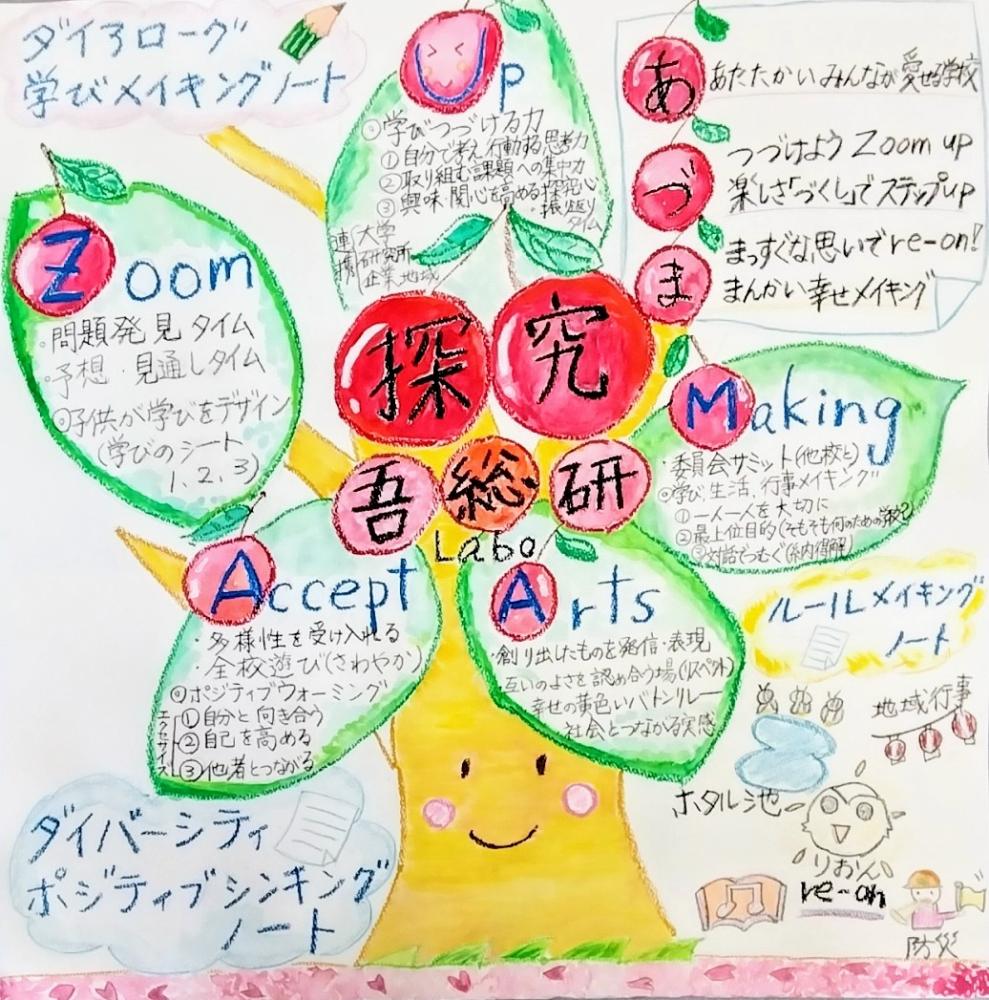 ダイアローグ
学びメイキングノート
Up
◎学びつづける力
①自分で考え行動する思考力
②取り組む課題への集中力
③興味・関心を高める探究心
・振り返り
タイム
連携
大学
研究所
企業 地域
あ
づ
ま
あたたかいみんなが愛せる学校
つづけようZoom up
楽しさ「づくし」でステップup
まっすぐな思いでre-on!
まんかい幸せメイキング
Zoom
・問題発見タイム
・予想・見通しタイム
◎子供が学びをデザイン
(学びのシート
1.2.3)
探究
吾総研
Labo
Making
・委員会サミット(他校と)
◎学び、生活、行事メイキング
①一人一人を大切に
②最上位目的(そもそも何のための学校?)
③対話でつむぐ(納得解)
Accept
・多様性を受け入れる
・全校遊び(さわやか)
◎ポジティブウォーミング
エクササイズ
①自分と向き合う
②自己を高める
③他者とつながる
Arts
・創り出したものを発信・表現
互いのよさを認め合う場(リスペクト)
幸せの黄色いバトンリレー
社会とつながる実感
ルールメイキング
ノート
地域行事
ホタル池
りおん
re-on
防災
ダイバーシティ
ポジティブシンキング
ノート